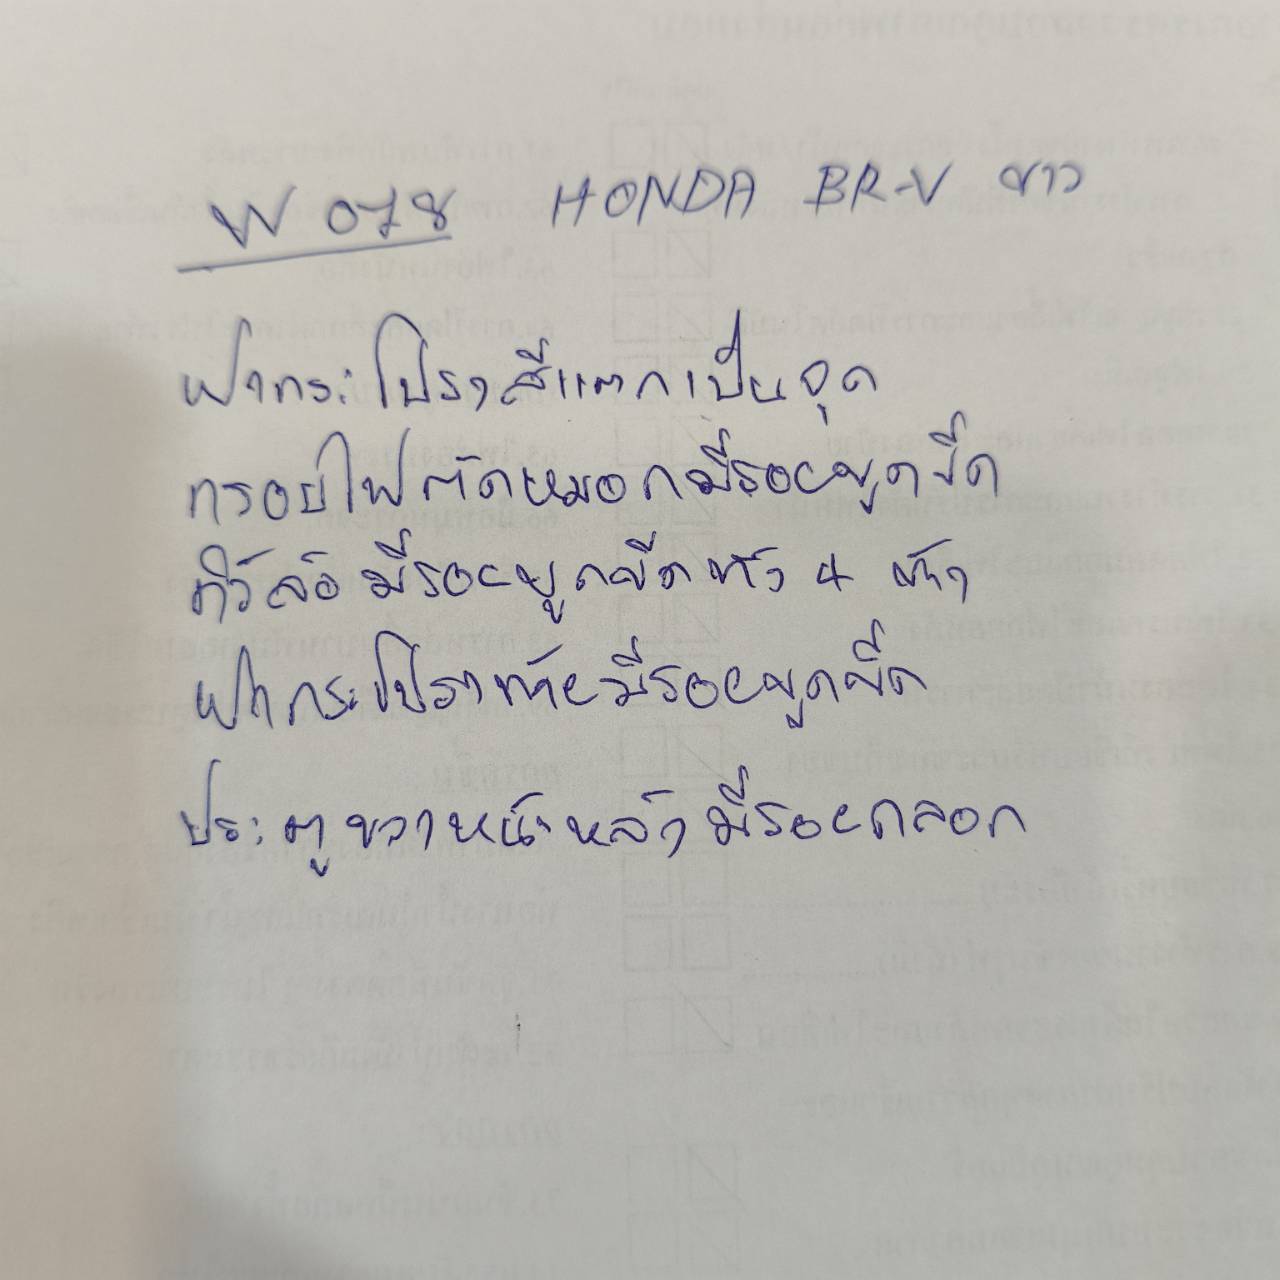 W 078 HONDA BR-V ขาว
ฝากระโปรงสีแตกเป็นจุด
กรอบไฟตัดหมอกมีรอยขูดขีด
คิ้วล้อมีรอยขูดขีดทั้ง 4 ข้าง
ฝากระโปรงท้ายมีรอยขูดขีด
ประตูขวาหน้าหลังมีรอยถลอก